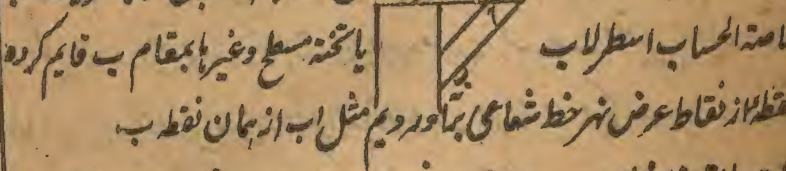 اصة الحساب اسطرلاب یا تختہ مسطح وغیرہا بمقام ب قایم کردہ
نقطۂ از نقاط عرض نہر خط شعاعی برآوردیم مثل اب از ہمان نقطہ ب